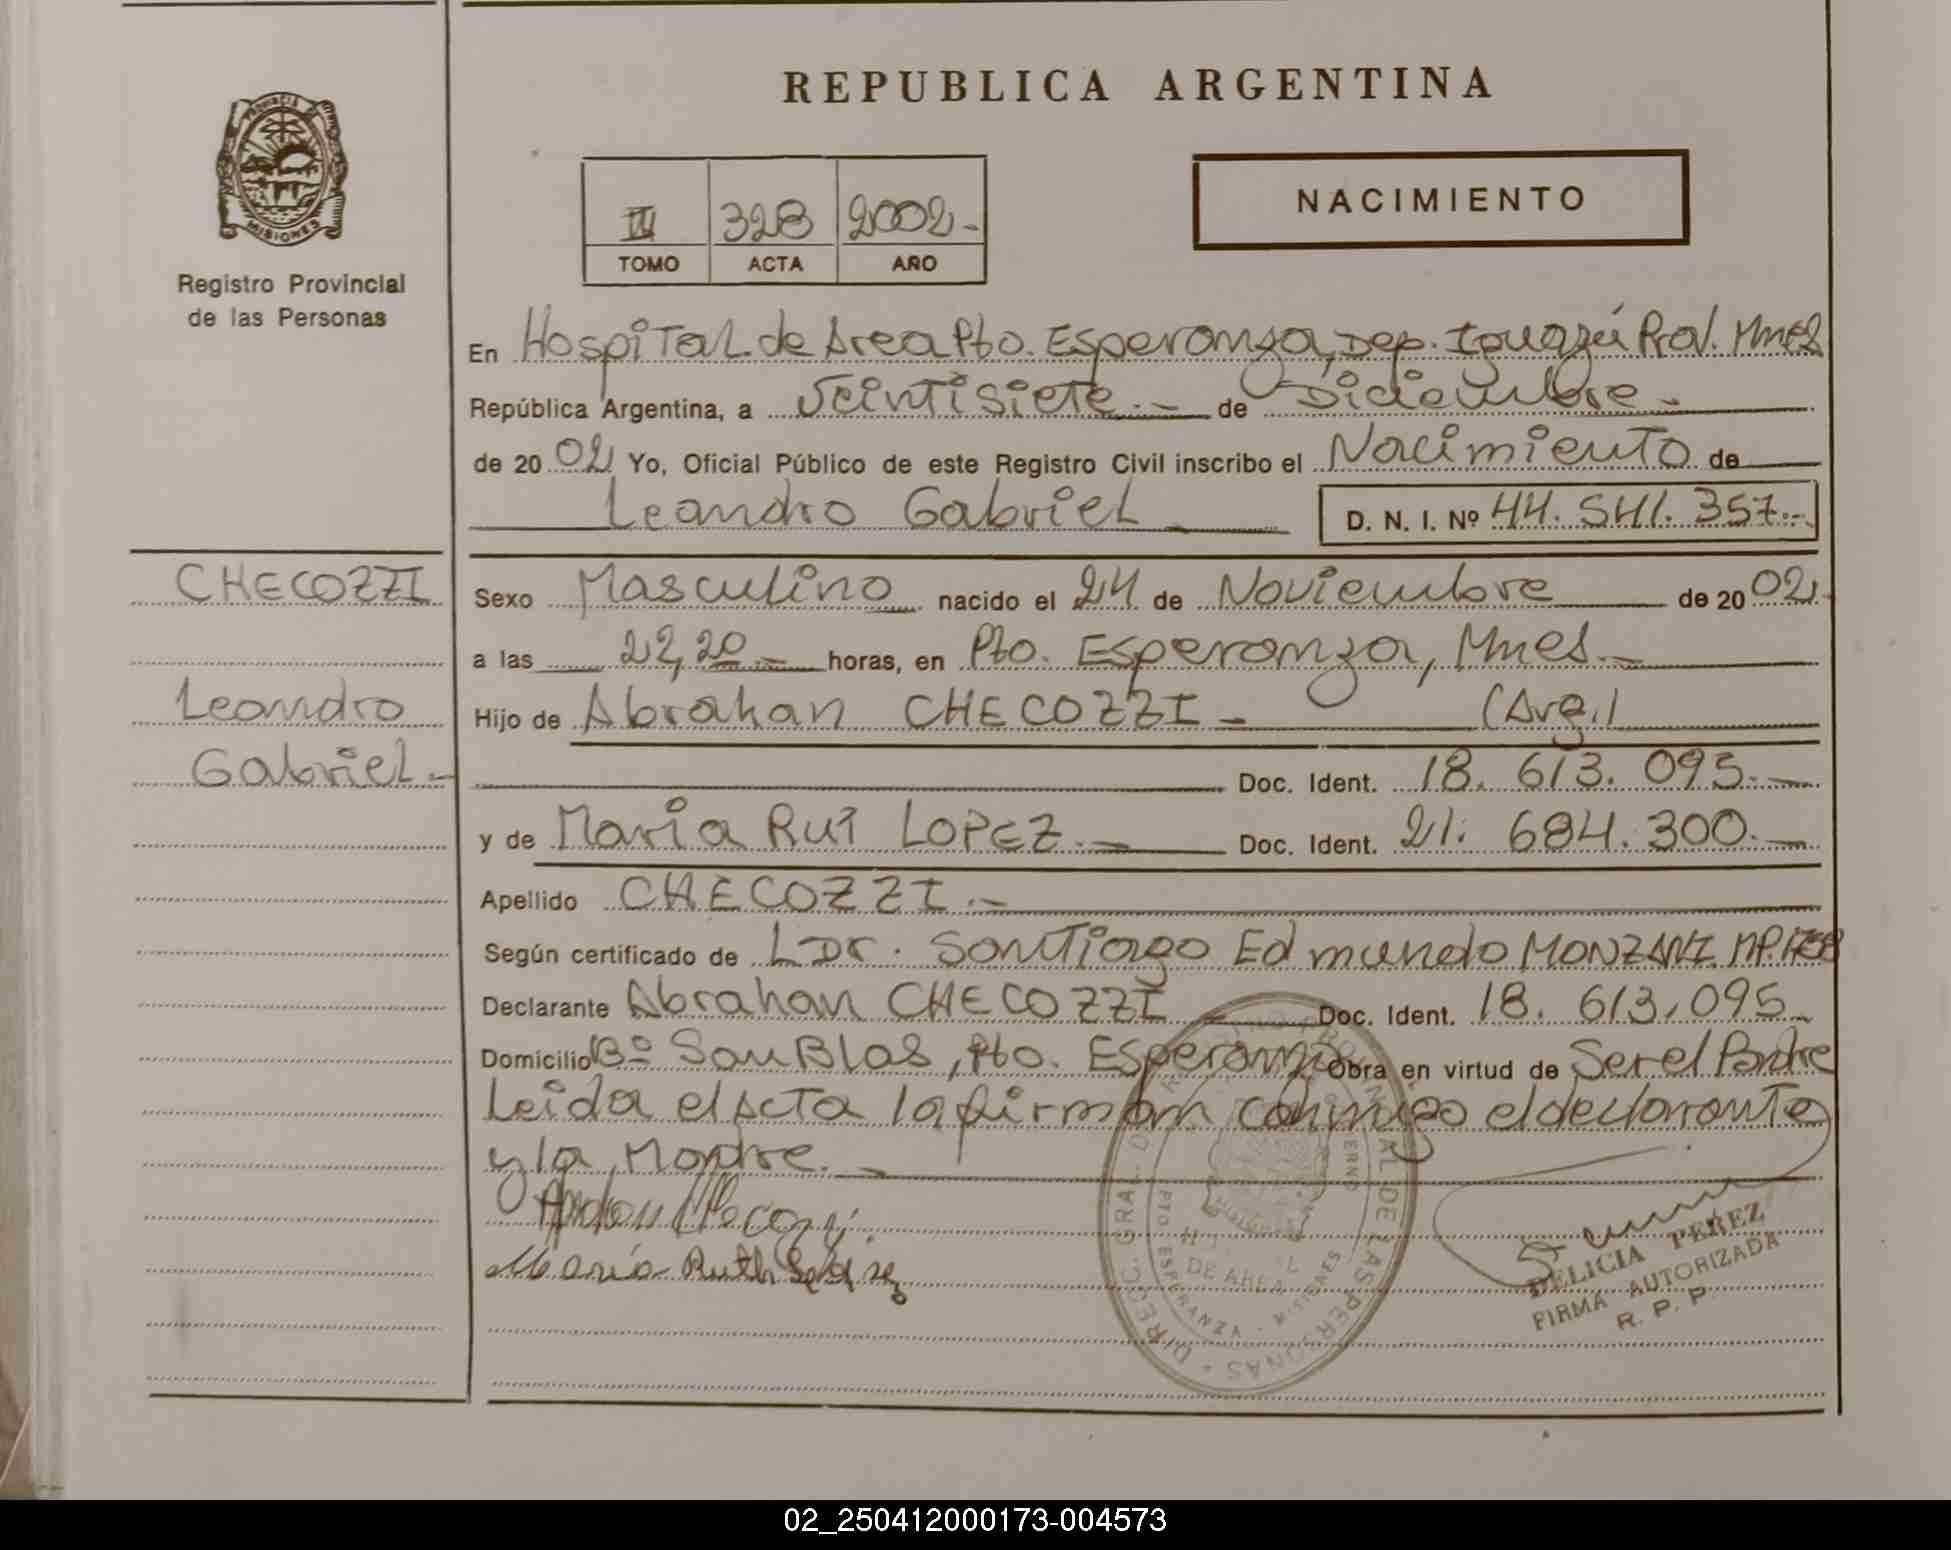 REPUBLICA ARGENTINA
PROVINCIA DE MISIONES
Registro Provincial
de las Personas
III 328 2002.-
TOMO ACTA AÑO
NACIMIENTO
En Hospital de Area Pto. Esperanza, Dep. Iguazú Prov. Mnes
República Argentina, a Veintisiete.- de Diciembre.-
de 2002 Yo, Oficial Público de este Registro Civil inscribo el Nacimiento de
Leandro Gabriel D. N. I. Nº 44.541.357.-
CHECOZZI
Leandro
Gabriel.-
Sexo Masculino nacido el 24 de Noviembre de 2002.
a las 22,20.- horas, en Pto. Esperanza, Mnes.-
Hijo de Abrahan CHECOZZI - (Arg.)
Doc. Ident. 18.613.095.-
y de Maria Rut LOPEZ.- Doc. Ident. 21.684.300.-
Apellido CHECOZZI.-
Según certificado de L Dr. Santiago Edmundo MONZANI. MP.
Declarante Abrahan CHECOZZI - Doc. Ident. 18.613,095-
Domicilio Bº San Blas, Pto. Esperanza Obra en virtud de Ser el Padre
Leida el Acta la firman conmigo el declarante
y la Madre.-
María Ruth
DIREC. GRAL. DE LAS PERSONAS
DE AREA
PTO ESPERANZA - MISIONES
DELICIA PEREZ
FIRMA AUTORIZADA
R. P. P
02_250412000173-004573